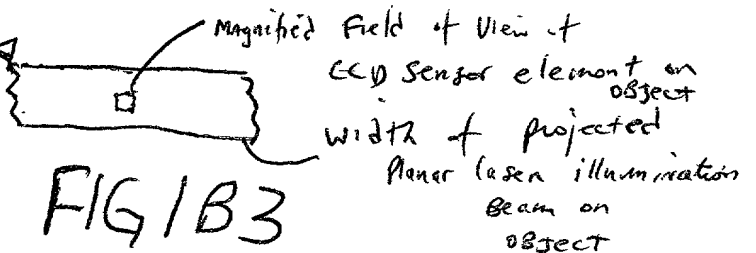 Magnified Field of View of
CCD Sensor element on
OBJect
width of projected
Planar laser illumination
Beam on
OBJect
FIG 1B3